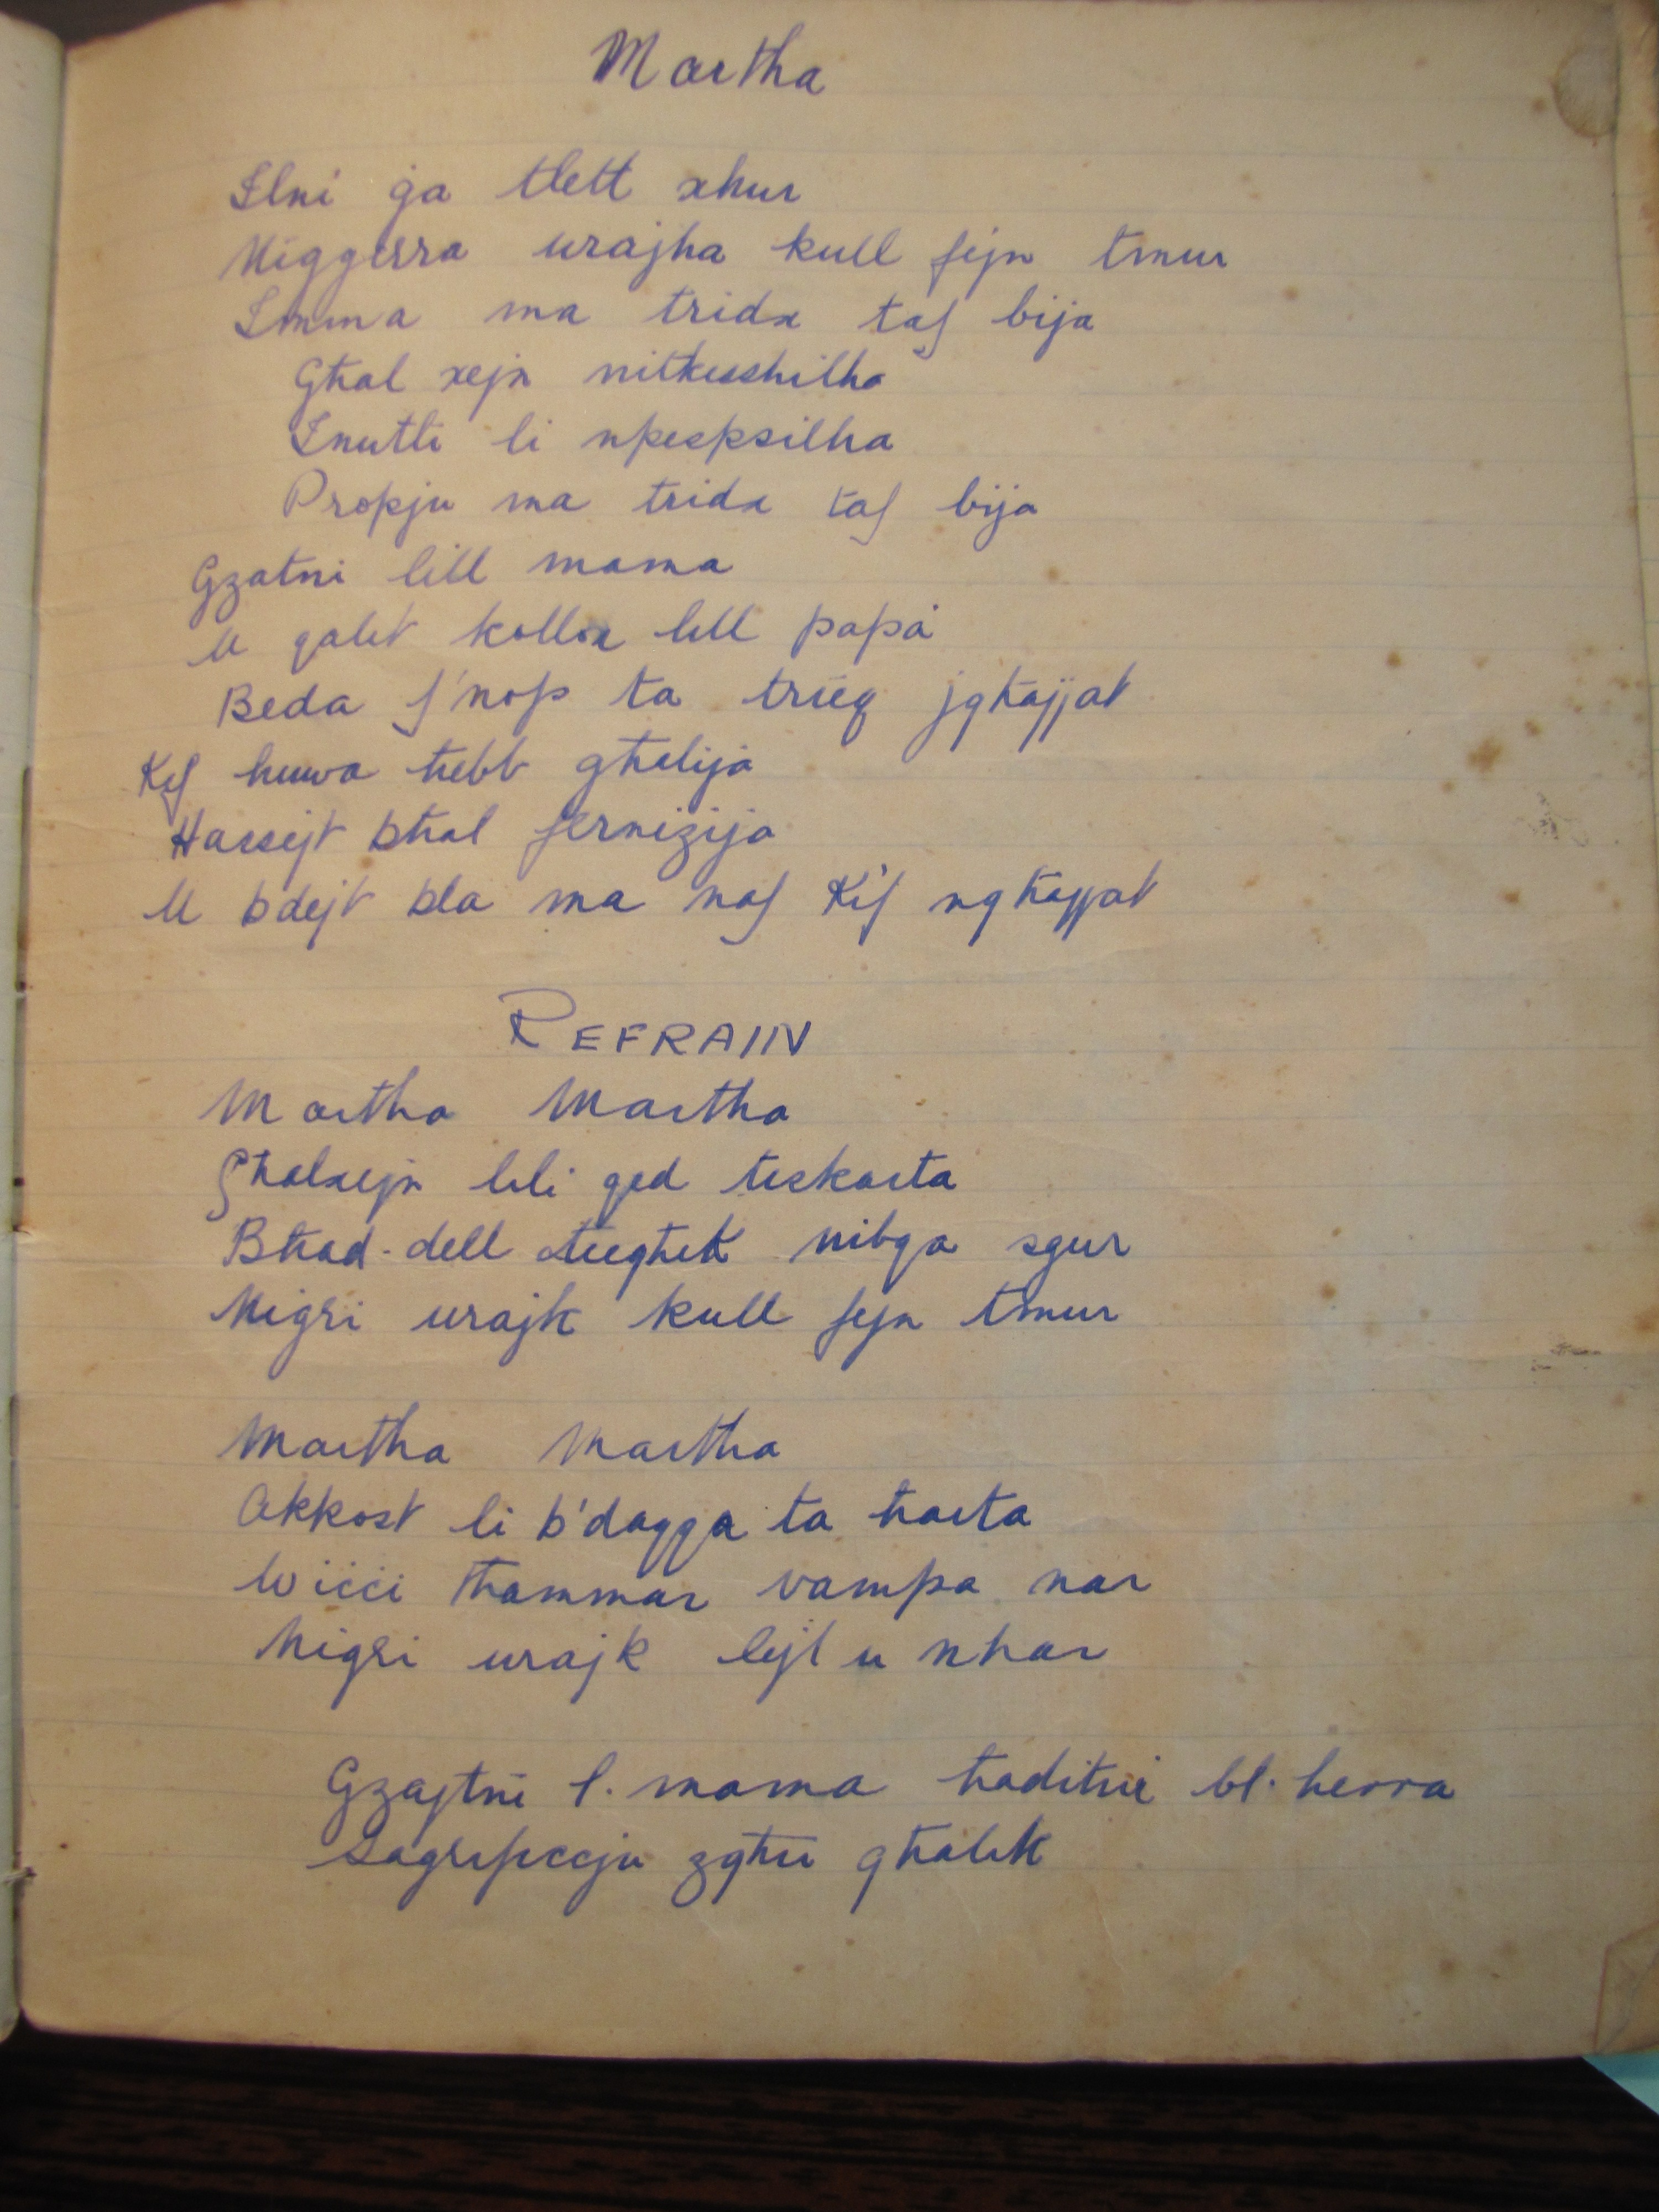 Martha
Ilni ġa tlett xhur
Niġġerra urajha kull fejn tmur
Imma ma tridx taf bija
Għal xejn nitkesshilha
Inutli li npespsilha
Propju ma tridx taf bija
Gżatni lill mama
U qalet kollox lill papá
Beda f'nofs ta trieq jgħajjat
Kif huwa ħebb għalija
Ħassejt bħal fernizija
U bdejt bla ma naf Kif ngħajjat
REFRAIIN
Martha Martha
Għalxejn lili qed teskarta
Bħad-dell tiegħek nibqa sgur
Niġri urajk kull fejn tmur
Martha Martha
Akkost li b'daqqa ta ħarta
Wiċċi tħammar vampa nar
Niġri urajk lejl u nhar
Gżajtni l. mama ħaditni bl. herra
Sagrifiċċju żgħir għalik